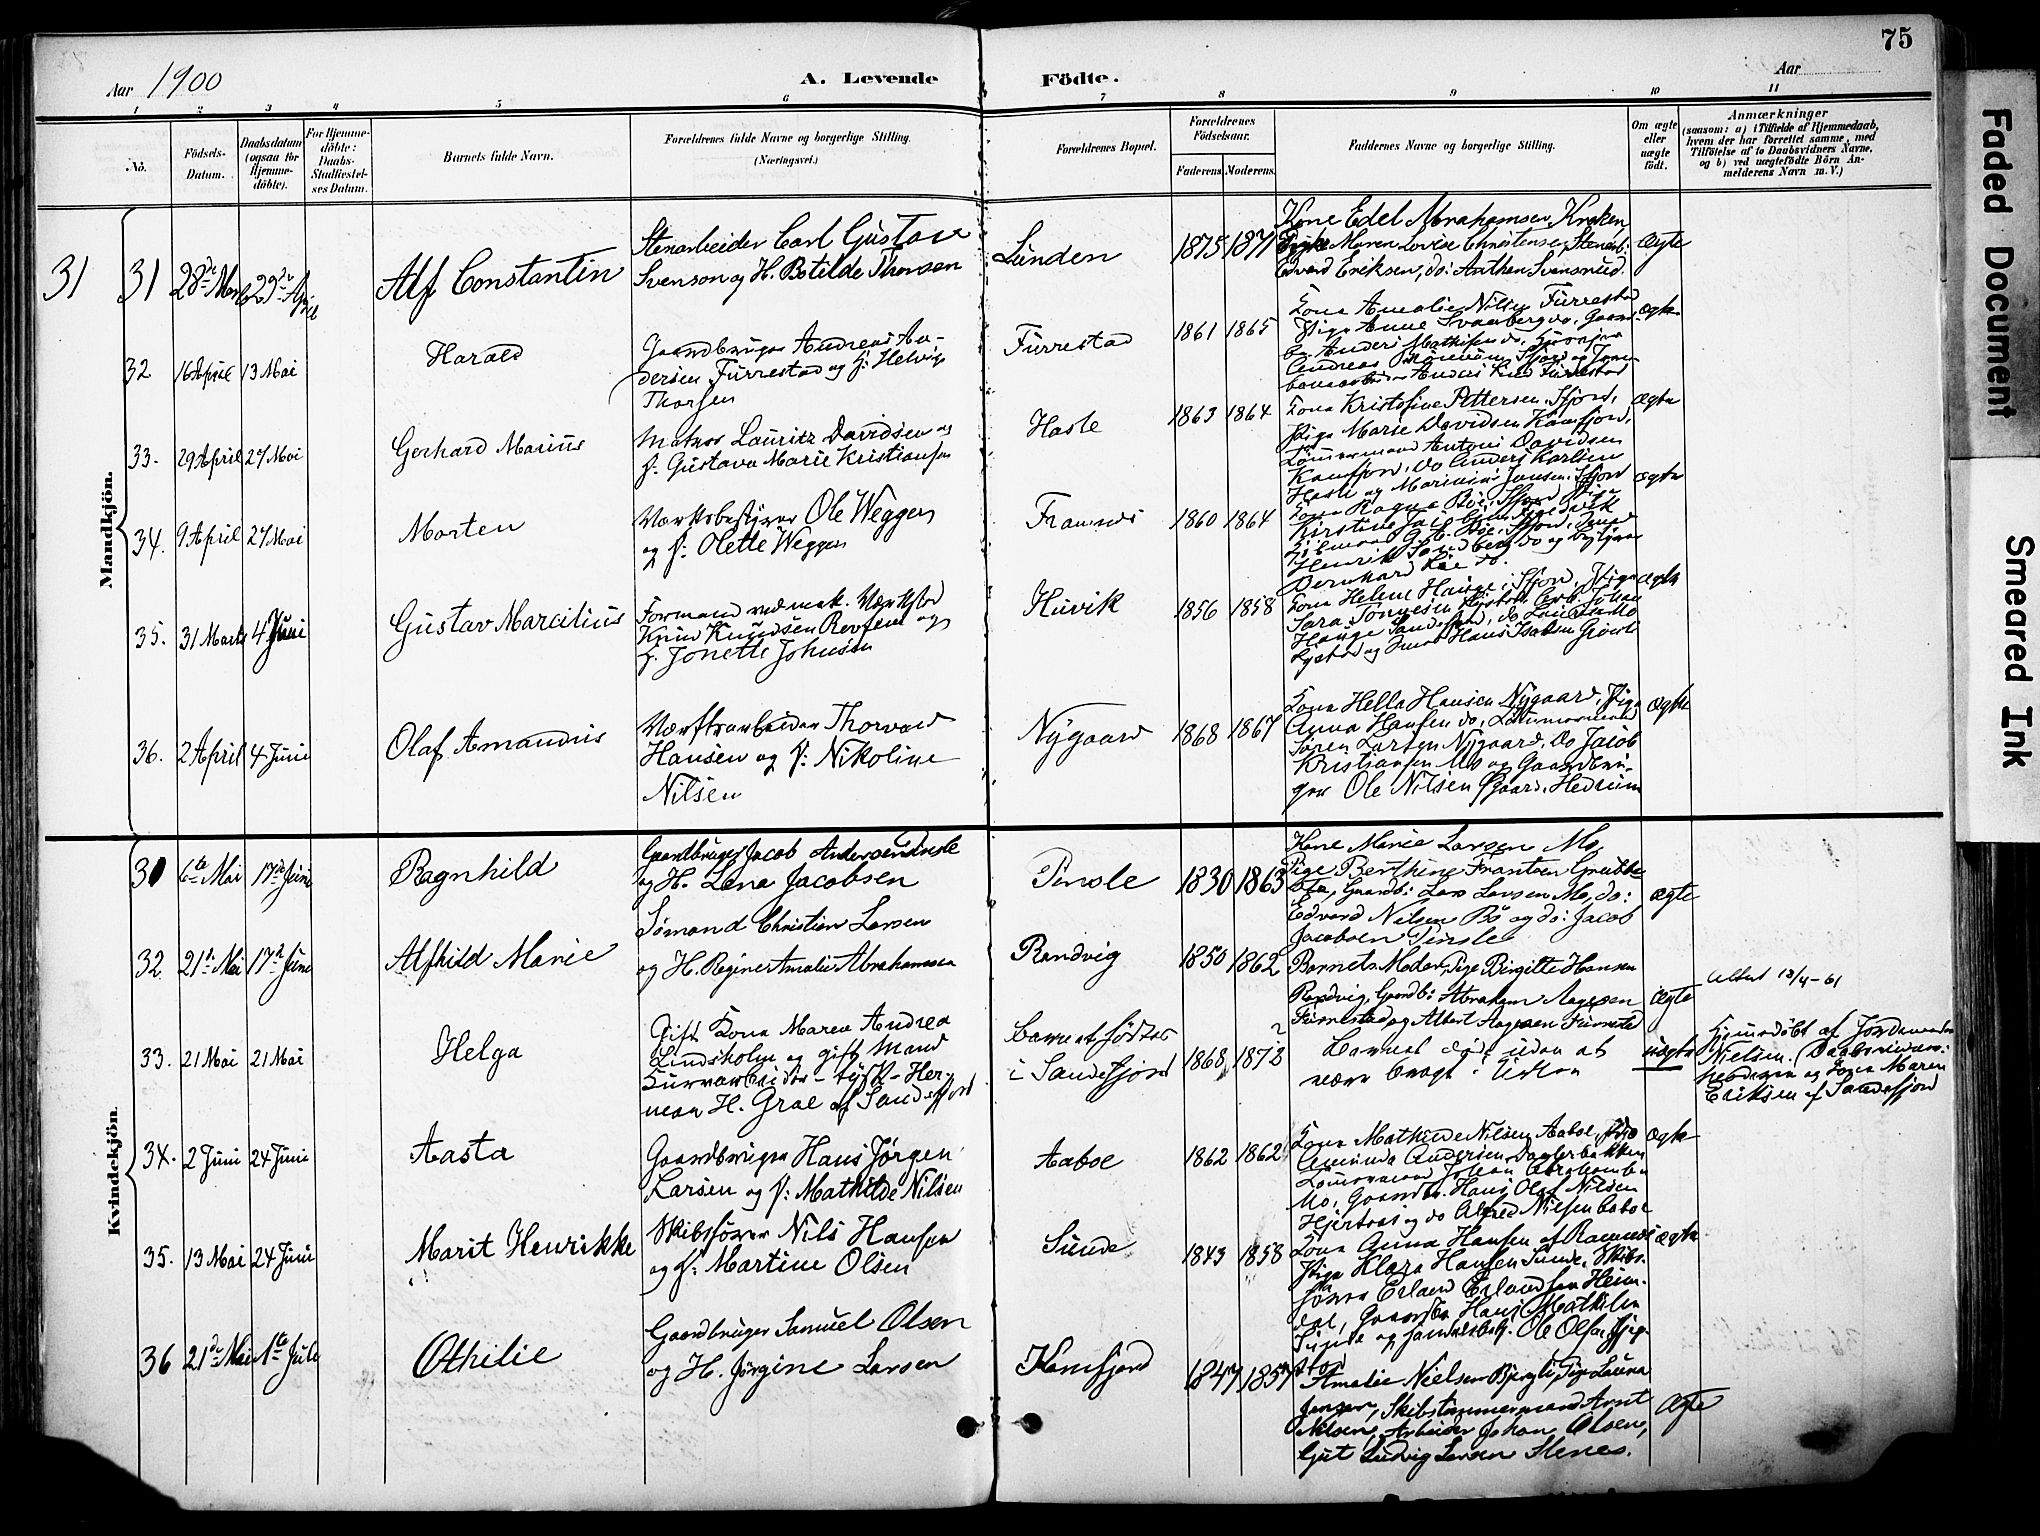 75
Aar 1900
A. Levende Födte.
Aar
1 2 3 4 5 6 7 8 9 10 11
No.
Födsels-Datum.
Daabsdatum (ogsaa for Hjemme-döbte).
For Hjemme-döbte: Daabs-Stadfæstel-ses Datum.
Barnets fulde Navn.
Forældrenes fulde Navne og borgerlige Stilling.
(Næringsvei.)
Forældrenes Bopæl.
Forældrenes Födselsaar.
Faderens Moderens
Faddernes Navne og borgerlige Stilling.
Om ægte eller uægte født.
Anmærkninger
(saasom: a) i Tilfælde af Hjemmedaab,
hvem der har forrettet samme, med
Tilföielse af to Daabsvidners Navne,
og b) ved uægtefödte Börn An-
melderens Navn m. V.)
Mandkjön.
31 31 28de Marts 29de April
Alf Constantin
Stenarbeider Carl Gustav
Svenson og H. Botilde Thorsen
Lunden
1875 1871
Kone Edel Abrahamsen, Kraken
Pige Maren Lovise Christensen, Stenarb:
Edvard Eriksen, do: Anthon Svensrud.
Ægte
32 16 April 13 Mai
Harald
Gaardbruger Andreas An-
dersen Furrestad og H: Helvig
Thorsen
Furrestad
1861 1865
Kona Amalie Nilsen Furrestad
Pige Anne Svaaberg do, Gaard-
br. Anders Mathisen do,
ægte
33. 29 April 27 Mai
Gerhard Marius
Matros Lauritz Davidsen og
H: Gustava Marie Kristiansen
Hasle
1863 1864
Kona Kristofine Pettersen, Sfjord,
Pige Marie Davidsen Kamfjord,
Tømmermand Antoni Davidsen
Kamfjord, do Anders Karlsen
Hasle og Marinius Jansen, Sfjord
ægte
34. 9 April 27 Mai
Morten
Værksbestyrer Ole Wegger
og H: Olette Wegger
Framnes
1860 1864
Kona Ragna Bøe, Sfjord
ægte
35. 31 Marts 4 Juni
Gustav Marcilius
Formand ved mek. Værksted
Knud Knudsen Revfem og
H. Jonette Johnsen
Huvik
1856 1858
Kona Helene Hauge, Sfjord, Pige
Sara Tønnesen
ægte
36. 2 April 4 Juni
Olaf Amandus
Værftsarbeider Thorvald
Hansen og H: Nikoline
Nilsen
Nygaard
1868 1867
Kona Hella Hansen Nygaard, Pige
Anna Hansen do, Tømmermand
Søren Larsen Nygaard, do Jacob
Kristiansen Mo og Gaardbru-
ger Ole Nilsen Ø Gaard, Hedrum
ægte
Kvindekjön.
31 6te Mai 17de Juni
Ragnhild
Gaardbruger Jacob Andersen Pinsle
og H. Lena Jacobsen
Pinsle
1830 1863
Kone Marie Larsen Mo,
Pige Berthine Frantsen Grubbe
, Gaardb: Lars Larsen Mo, do:
Edvard Nilsen Bö og do: Jacob
Jacobsen Pinsle
Ægte
32 21de Mai 17de Juni
Alfhild Marie
Sømand Christian Larsen
og H. Regine Amalie Abrahamsen
Randvig
1850 1862
Barnets Moder, Pige Birgitte Hansen
Randvig, Gaardb: Abraham Aagesen
Furrestad og Albert Aagesen Furrestad
Ægte
Attest 13/4-61
33. 21 Mai 21 Mai
Helga
Gift Kona Maren Andrea
Lindsholm og gift Mand
Kurvarbeider - tysk - Her-
man H. Grae af Sandefjord
Barnet fødtes
i Sandefjord
1868 1872
Barnet døde uden at
være bragt i Kirken
uægte
Hjemmedøbt af Jordemoder
Nielsen.
og Kona Maren
Eriksen af Sandefjord
34. 2 Juni 24 Juni
Aasta
Gaardbruger Hans Jørgen
Larsen og H: Mathilde Nilsen
Aaboe
1862 1862
Kona Mathilde Nilsen Aaboe, Pige
Aminda Andersen Daglerbakken
Tømmermand Johan Abrahamsen
Mo, Gaardbr. Hans Olaf Nilsen
Hjertnæs og do Alfred Nilsen Aaboe
ægte
35. 13 Mai 24 Juni
Marit Henrikke
Skibsfører Nils Hansen
og H: Martine Olsen
Sunde
1843 1858
Kona Anna Hansen af Ramnes
Pige Klara Hansen Sunde, Skibs-
fører Erland Erlandsen Heim-
dal, Gaardbr Hans Mathisen
Sunde og Ole Olsen
ægte
36 21de Mai 1ste Juli
Othilie
Gaardbruger Samuel Olsen
og H. Jørgine Larsen
Kamfjord
1847 1857
Amalie Nielsen Bjergli, Pige Laura
Jensen, Skibstømmermand Arnt
Nilsen, Arbeider Johan Olsen,
Gut Ludvig Larsen Stenes.
Ægte
Faded Document
Smeared Ink